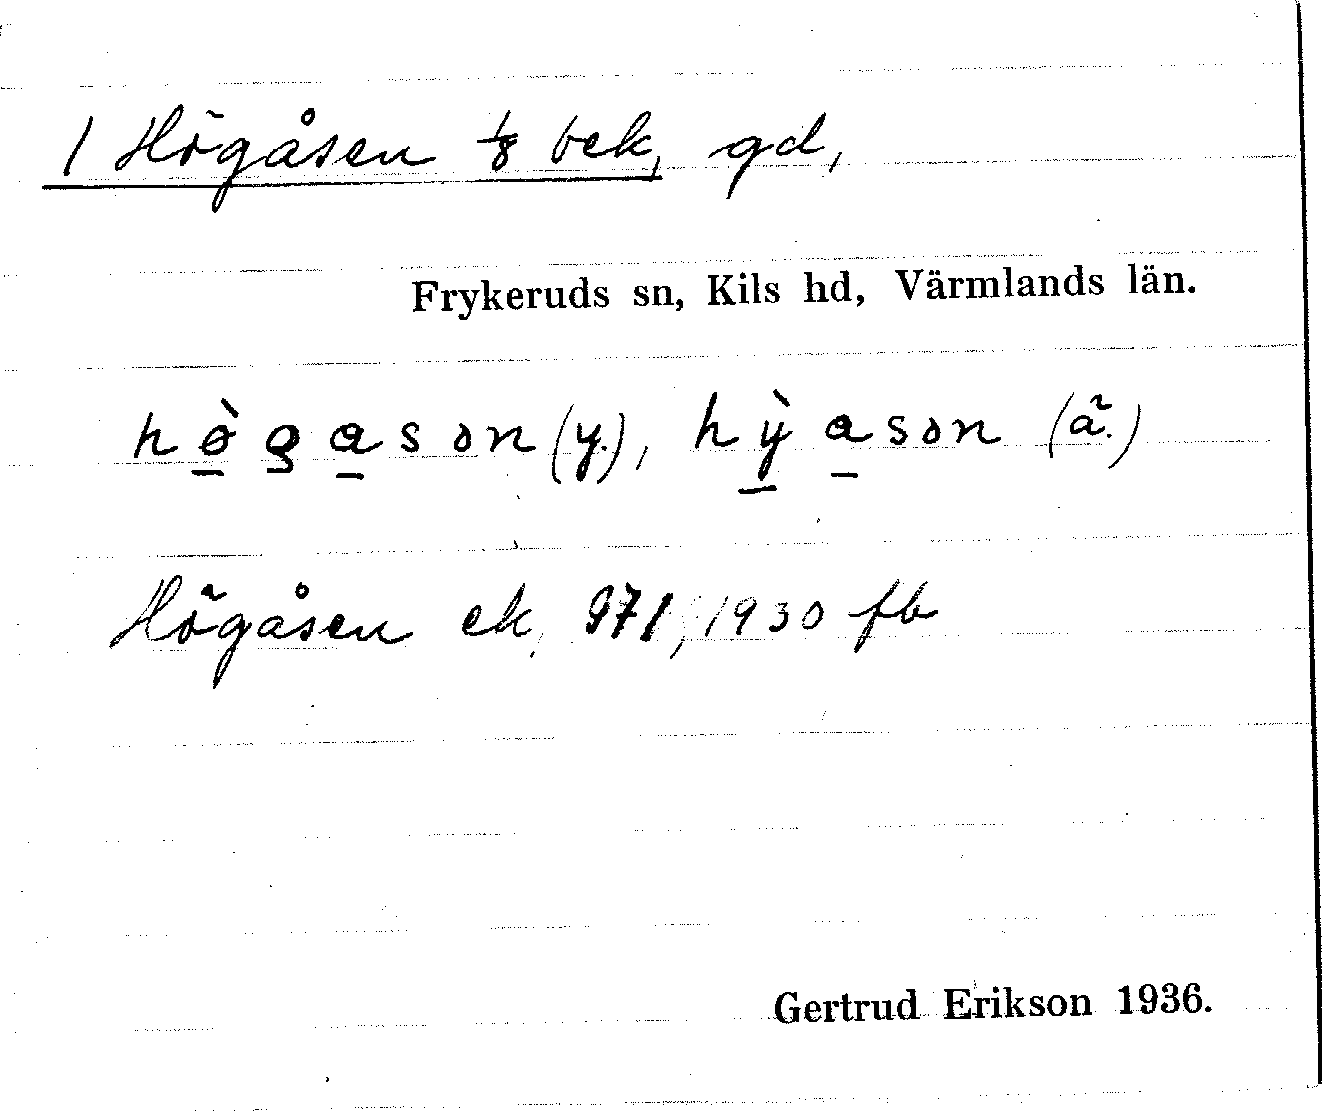 1 Högåsen 1/8 bek, gd,
Frykeruds sn, Kils hd, Värmlands län.
hø̀gasən (y.), hỳasən (ä.)
Högåsen ek, 971, 1930 fb
Gertrud Erikson 1936.